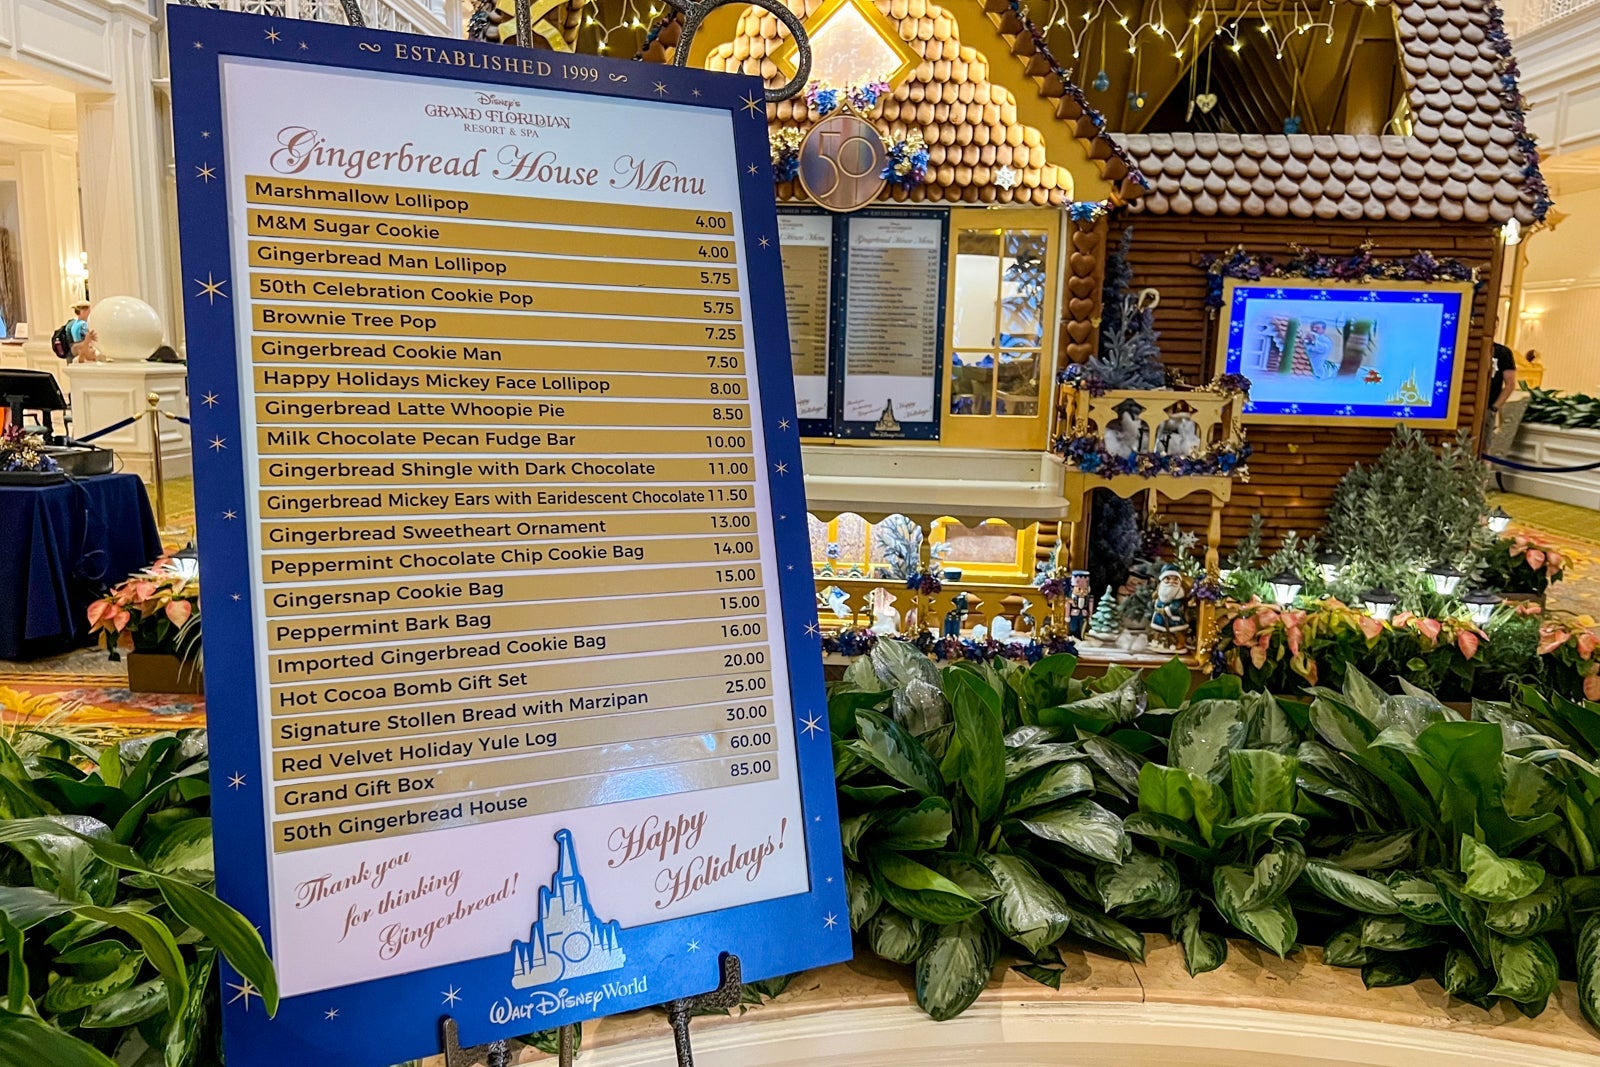 ESTABLISHED 1999
Disney's
GRAND FLORIDIAN
RESORT & SPA
Gingerbread House Menu
Marshmallow Lollipop 4.00
M&M Sugar Cookie 4.00
Gingerbread Man Lollipop 5.75
50th Celebration Cookie Pop 5.75
Brownie Tree Pop 7.25
Gingerbread Cookie Man 7.50
Happy Holidays Mickey Face Lollipop 8.00
Gingerbread Latte Whoopie Pie 8.50
Milk Chocolate Pecan Fudge Bar 10.00
Gingerbread Shingle with Dark Chocolate 11.00
Gingerbread Mickey Ears with Earidescent Chocolate 11.50
Gingerbread Sweetheart Ornament 13.00
Peppermint Chocolate Chip Cookie Bag 14.00
Gingersnap Cookie Bag 15.00
Peppermint Bark Bag 15.00
Imported Gingerbread Cookie Bag 16.00
Hot Cocoa Bomb Gift Set 20.00
Signature Stollen Bread with Marzipan 25.00
Red Velvet Holiday Yule Log 30.00
Grand Gift Box 60.00
50th Gingerbread House 85.00
Thank you
for thinking
Gingerbread!
Happy
Holidays!
50
Walt Disney World
50
Gingerbread House Menu
Happy
Holidays!
50